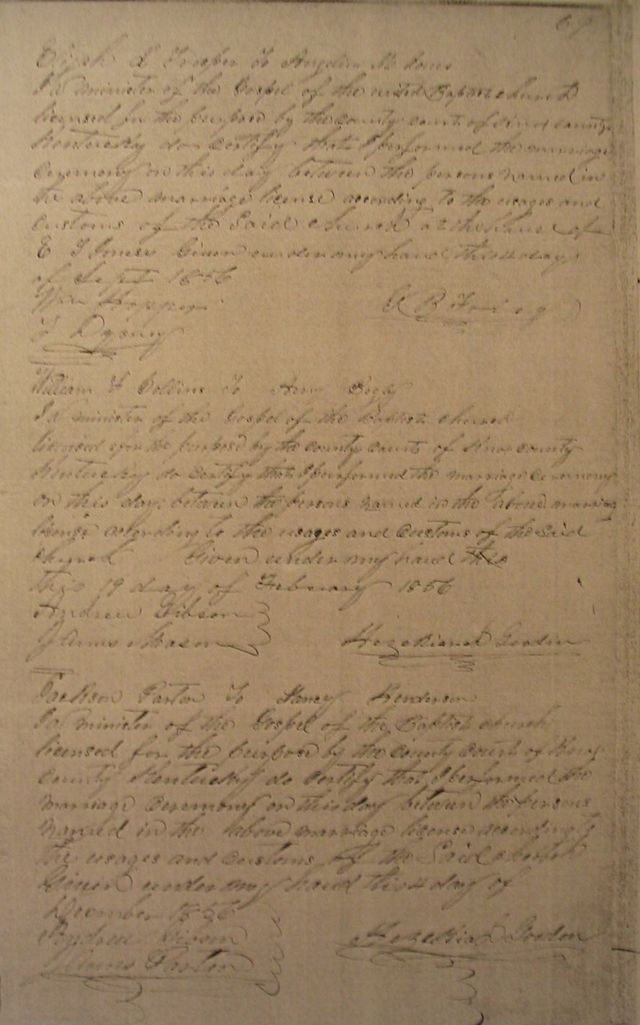 69
Elijah L to Angeline
I a minister of the Gospel of the united Baptist church
licensed for the purpose by the county court of Knox county
Kentucky do certify that I performed the marriage
ceremony on this day between the persons named in
the above marriage license according to the usages and
customs of the Said church at the house of
E T Jones Given under my hand this 4 day
of Sept 1856
Wm Hopper
E B
William F Collins to Amy
I a minister of the Gospel of the Baptist church
licensed for the purpose by the county court of Knox county
Kentucky do certify that I performed the marriage ceremony
on this day between the persons named in the above marriage
license according to the usages and customs of the Said
church Given under my hand this
this 19 day of February 1856
Andrew Gibson
James Mason
Hezekiah Gordon
Jackson Parton to Nancy Henderson
I a minister of the Gospel of the Baptist church
licensed for the purpose by the county court of Knox
County Kentucky do certify that I performed the
marriage ceremony on this day between the persons
named in the above marriage license according to
the usages and customs of the Said church
Given under my hand this 4 day of
December 1856
Andrew Gibson
James Parton
Hezekiah Gordon